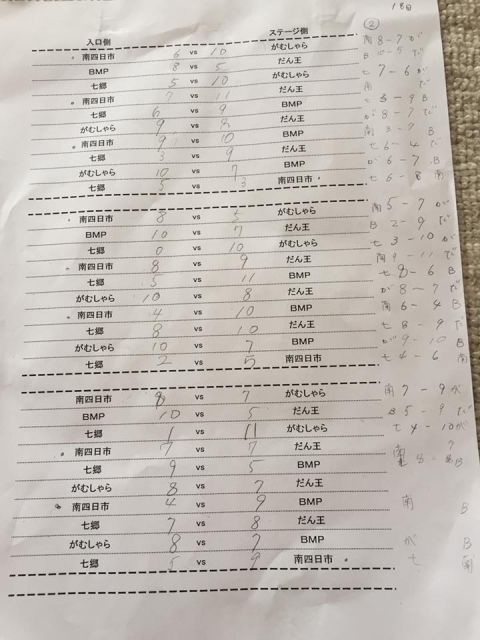 18日
入口側 ステージ側 ②
南四日市 6 vs 10 がむしゃら 南 8 - 7 が
BMP 8 vs 5 だん王 B 10 - 5 だ
七郷 5 vs 10 がむしゃら 七 7 - 6 が
南四日市 7 vs 11 だん王 南 だ
七郷 6 vs 9 BMP 七 3 - 9 B
がむしゃら 9 vs 8 だん王 が 8 - 7 だ
南四日市 9 vs 10 BMP 南 3 - 7 B
七郷 3 vs 9 だん王 七 6 - 4 だ
がむしゃら 10 vs 7 BMP が 6 - 7 B
七郷 5 vs 3 南四日市 七 6 - 8 南
南四日市 8 vs 5 がむしゃら 南 5 - 7 が
BMP 10 vs 7 だん王 B 2 - 9 だ
七郷 0 vs 10 がむしゃら 七 3 - 10 が
南四日市 8 vs 9 だん王 南 9 - 11 だ
七郷 5 vs 11 BMP 七 8 - 6 B
がむしゃら 10 vs 8 だん王 が 8 - 7 だ
南四日市 4 vs 10 BMP 南 6 - 4 B
七郷 8 vs 10 だん王 七 8 - 9 だ
がむしゃら 10 vs 7 BMP が 9 - 10 B
七郷 2 vs 5 南四日市 七 4 - 6 南
南四日市 8 vs 7 がむしゃら 南 7 - 9 が
BMP 10 vs 5 だん王 B 5 - 9 だ
七郷 1 vs 11 がむしゃら 七 4 - 10 が
南四日市 7 vs 7 だん王 南 7
七郷 9 vs 5 BMP 七 8 - B
がむしゃら 8 vs 7 だん王
南四日市 4 vs 9 BMP 南 B
七郷 7 vs 8 だん王
がむしゃら 8 vs 7 BMP が B
七郷 5 vs 9 南四日市 七 南